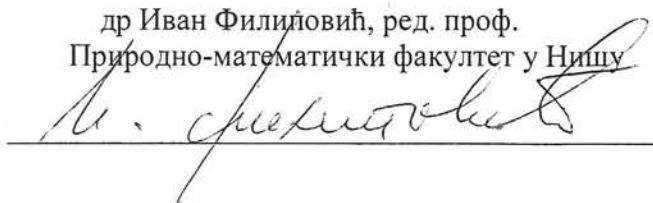 др Иван Филиповић, ред. проф.
Природно-математички факултет у Нишу
И. Филиповић